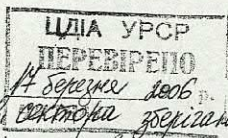 ЦДІА УРСР
ПЕРЕВІРЕНО
17 березня 2006 р.
сектора зберіган